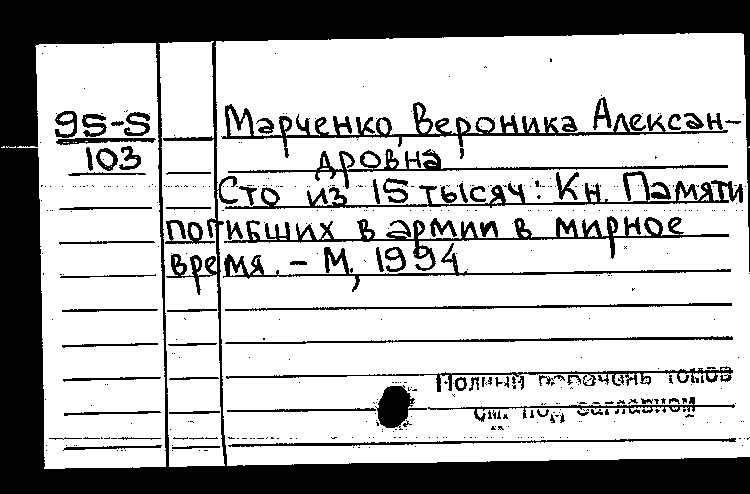 95-5
103
Марченко, Вероника Алексан-
дровна
Сто из 15 тысяч: Кн. Памяти
погибших в армии в мирное
время. – М., 1994.
Полный перечень томов
см. под заглавием